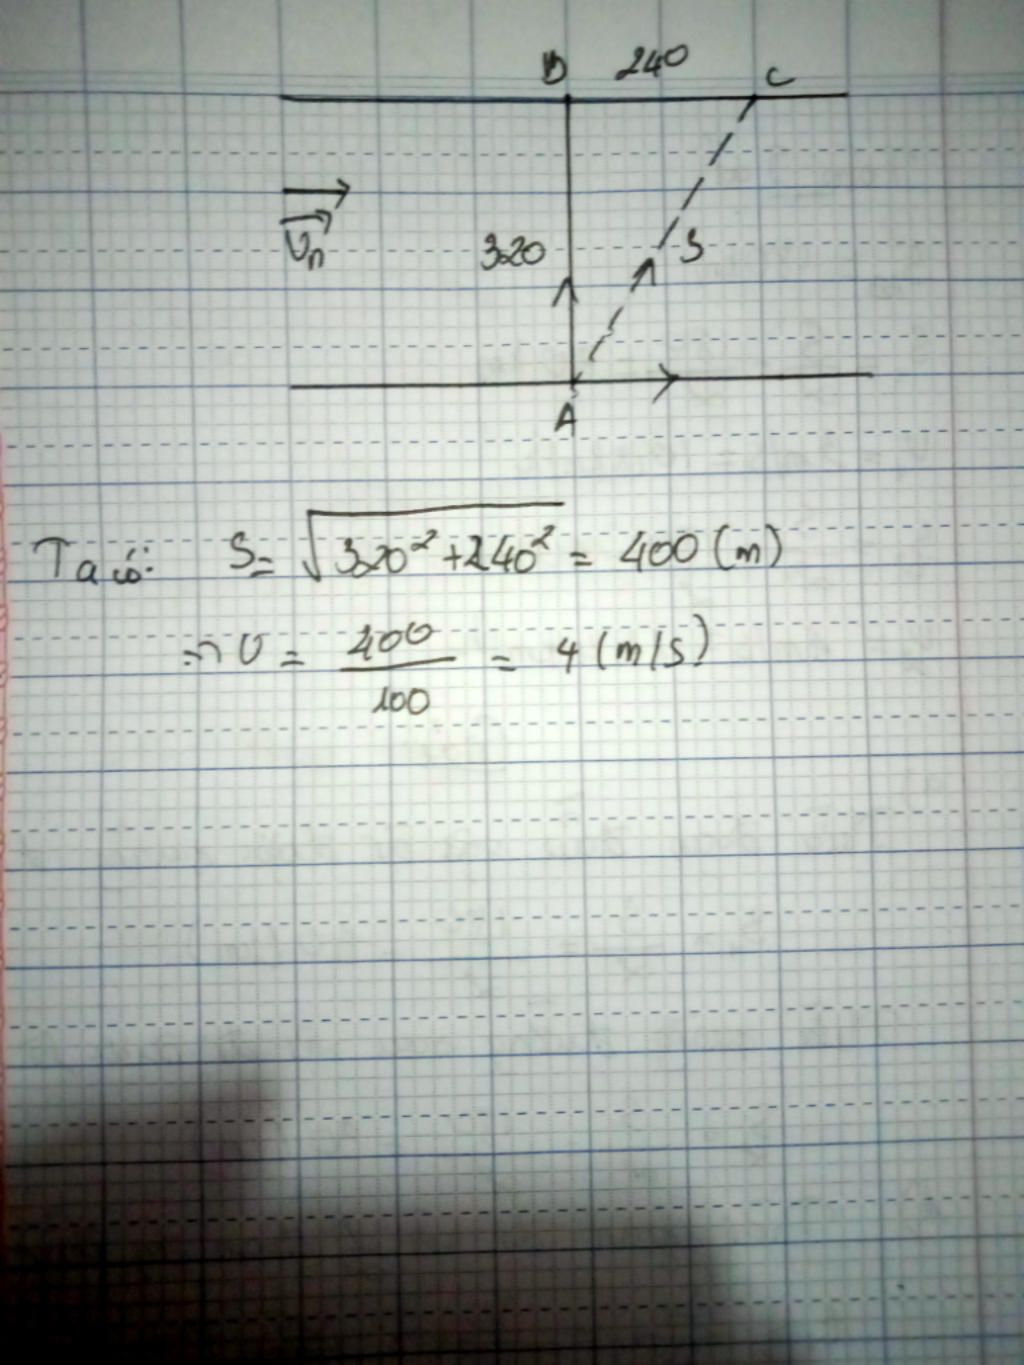 B 240 C
Vn
320 S
A
Ta có: S = √320² + 240² = 400 (m)
=> v = 400/100 = 4 (m/s)